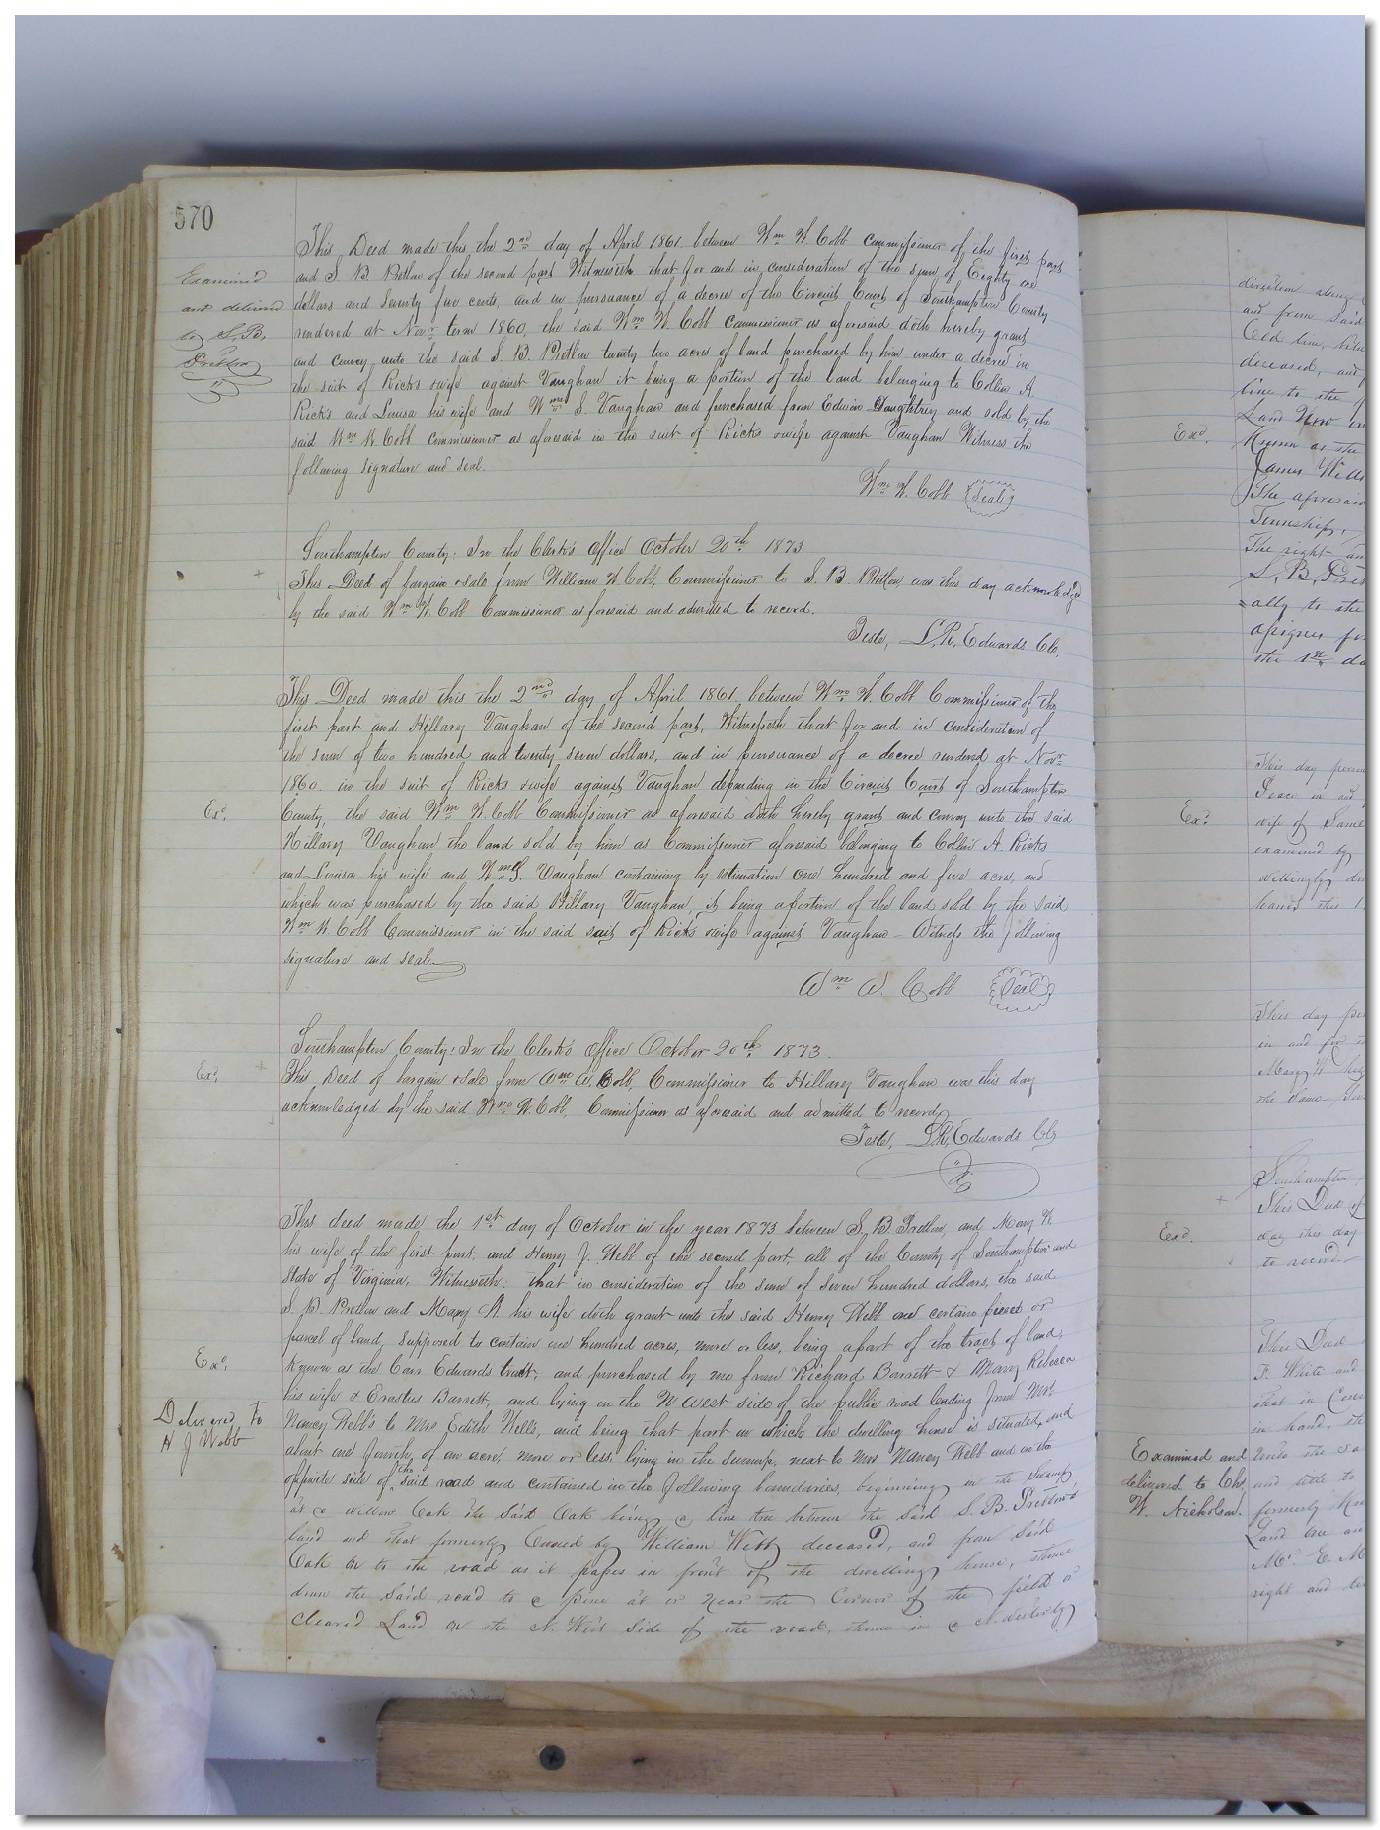 570
This Deed made this the 2nd day of April 1861 between Wm W. Cobb Commissioner of the first part
and S B Pretlow of the second part Witnesseth that for and in consideration of the sum of Eighty one
dollars and seventy five cents, and in pursuance of a decree of the Circuit Court of Southampton County
rendered at Novr term 1860, the said Wm W. Cobb Commissioner as aforesaid doth hereby grant
and convey unto the said S. B. Pretlow twenty two acres of land purchased by him under a decree in
the suit of Ricks & wife against Vaughan it being a portion of the land belonging to Collin A
Ricks and Louisa his wife and Wm S. Vaughan and purchased from Edwin Daughtrey and sold by the
said Wm W. Cobb commissioner as aforesaid in the suit of Ricks & wife against Vaughan Witness the
following signature and seal.
Wm W. Cobb (Seal)
Examined
and delivered
to S. B.
Pretlow
Southampton County: In the Clerk's Office October 20th 1873
This Deed of bargain & sale from William W. Cobb, Commissioner to S. B. Pretlow, was this day acknowledged
by the said Wm W. Cobb Commissioner as aforesaid and admitted to record.
Teste, L. R. Edwards Clk.
This Deed made this the 2nd day of April 1861, between Wm W. Cobb Commissioner of the
first part and Hillary Vaughan of the second part, Witnesseth that for and in consideration of
the sum of two hundred and twenty seven dollars, and in pursuance of a decree rendered at Novr
1860 in the suit of Ricks & wife against Vaughan depending in the Circuit Court of Southampton
County, the said Wm W. Cobb Commissioner as aforesaid doth hereby grant and convey unto the said
Hillary Vaughan the land sold by him as Commissioner aforesaid belonging to Collin A. Ricks
and Louisa his wife and Wm S. Vaughan containing by estimation one hundred and five acres, and
which was purchased by the said Hillary Vaughan, it being a portion of the land sold by the said
Wm W. Cobb Commissioner in the said suit of Ricks & wife against Vaughan - Witness the following
signature and seal.
Wm W. Cobb (Seal)
Exd.
Southampton County: In the Clerk's Office October 20th 1873.
This Deed of bargain & sale from Wm W. Cobb, Commissioner to Hillary Vaughan was this day
acknowledged by the said Wm W. Cobb, Commissioner as aforesaid and admitted to record,
Teste, L. R. Edwards Clk
Exd.
This deed made the 1st day of October in the year 1873 between S. B. Pretlow, and Mary W.
his wife of the first part, and Henry J. Webb of the second part, all of the County of Southampton and
State of Virginia, Witnesseth: that in consideration of the sum of Seven hundred dollars, the said
S. B Pretlow and Mary W. his wife doth grant unto the said Henry Webb one certain piece or
parcel of land, supposed to contain one hundred acres, more or less, being a part of the tract of land,
known as the Carr Edwards tract, and purchased by me from Richard Barrett & Mary Rebecca
his wife & Erastus Barrett, and lying on the N west side of the public road leading from Mrs.
Nancy Webb's to Mrs Edith Wells, and being that part on which the dwelling house is situated, and
about one fourth of an acre, more or less, lying in the swamp, next to Mrs Nancy Webb and on the
opposite side of the said road and contained in the following boundaries, beginning in the Swamp
at a willow Oak the said Oak being a line tree between the said S. B. Pretlow's
land and that formerly Owned by William Webb deceased, and from said
Oak on to the road as it passes in front of the dwelling house, thence
down the said road to a pine at or near the Corner of the field or
Cleared Land on the N. West side of the road, thence in a N. westerly
Exd.
Delivered to
H J Webb
direction along
and from said
Old line,
deceased, and
line to the
Land Now
Known as the
James
The aforesaid
Township,
The right
S, B, Pret
ally to the
assigns
the 1st
Exd.
This day
Peace in and
wife of
examined by
willingly
hand this
Exd.
This day
in and for
Mary W
the same
Southampton
This Deed of
day this day
to record
Exd.
This Deed
F. White and
that in Cons
in hand, the
unto the sa
and
formerly
Land
Mr. E. M
right and
Examined and
delivered to Chs.
W. Nicholson.